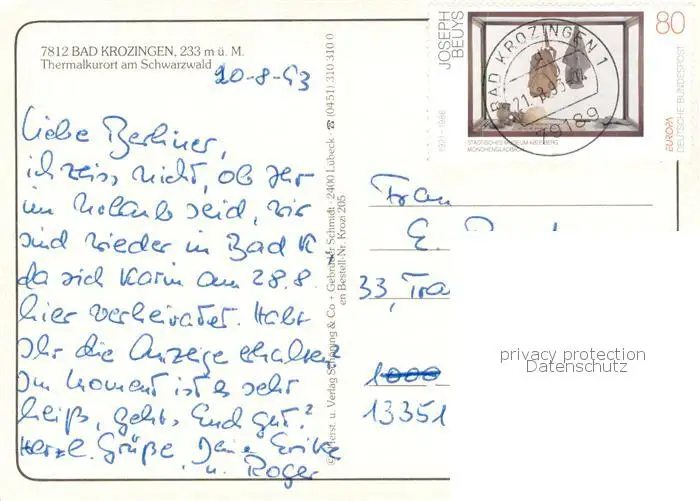 7812 BAD KROZINGEN, 233 m ü. M.
Thermalkurort am Schwarzwald
20-8-93
Liebe Berliner,
ich weiss nicht, ob Ihr
im Urlaub seid, wir
sind wieder in Bad K.
da sich Karin am 28.8.
hier verheiratet. Habt
Ihr die Anzeige erhalten?
Im Moment ist es sehr
heiß, geht's Euch gut?
Herzl. Grüße, Deine Erika
u. Roger
© Herst. u. Verlag Schöning & Co + Gebrüder Schmidt · 2400 Lübeck · ☎ (0451) 310 310 0
en Bestell-Nr. Krozi 205
JOSEPH
BEUYS
1921–1986
80
STÄDTISCHES MUSEUM ABTEIBERG
MÖNCHENGLADBACH
EUROPA
DEUTSCHE BUNDESPOST
BAD KROZINGEN 1
79189
Frau
E.
33, Tra
1000
13351
privacy protection
Datenschutz